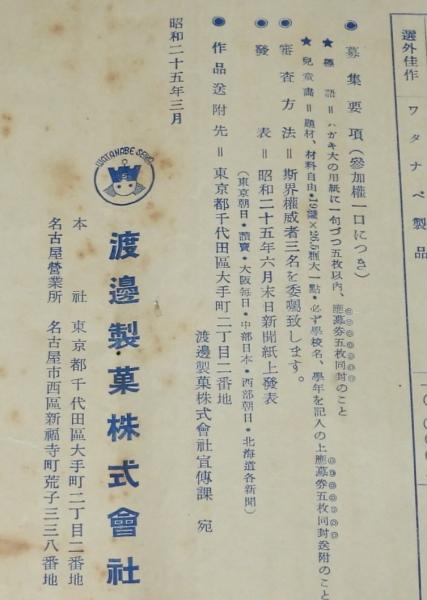 選外佳作
ワタナベ製品
● 募集要項（參加權一口につき）
★標語＝ハガキ大の用紙に一句づつ五枚以内、應募券五枚同封のこと
★兒童畫＝題材、材料自由・19糎×26.5糎大一點・必ず學校名、學年を記入の上應募券五枚同封送附のこと
● 審査方法＝斯界權威者三名を委囑致します。
● 發表＝昭和二十五年六月末日新聞紙上發表
（東京朝日・讀賣・大阪毎日・中部日本・西部朝日・北海道各新聞）
● 作品送附先＝東京都千代田區大手町二丁目二番地
渡邊製菓株式會社宣傳課 宛
昭和二十五年三月
WATANABE SEIKA
渡邊製菓株式會社
本社 東京都千代田區大手町二丁目二番地
名古屋營業所 名古屋市西區新福寺町荒子三三八番地